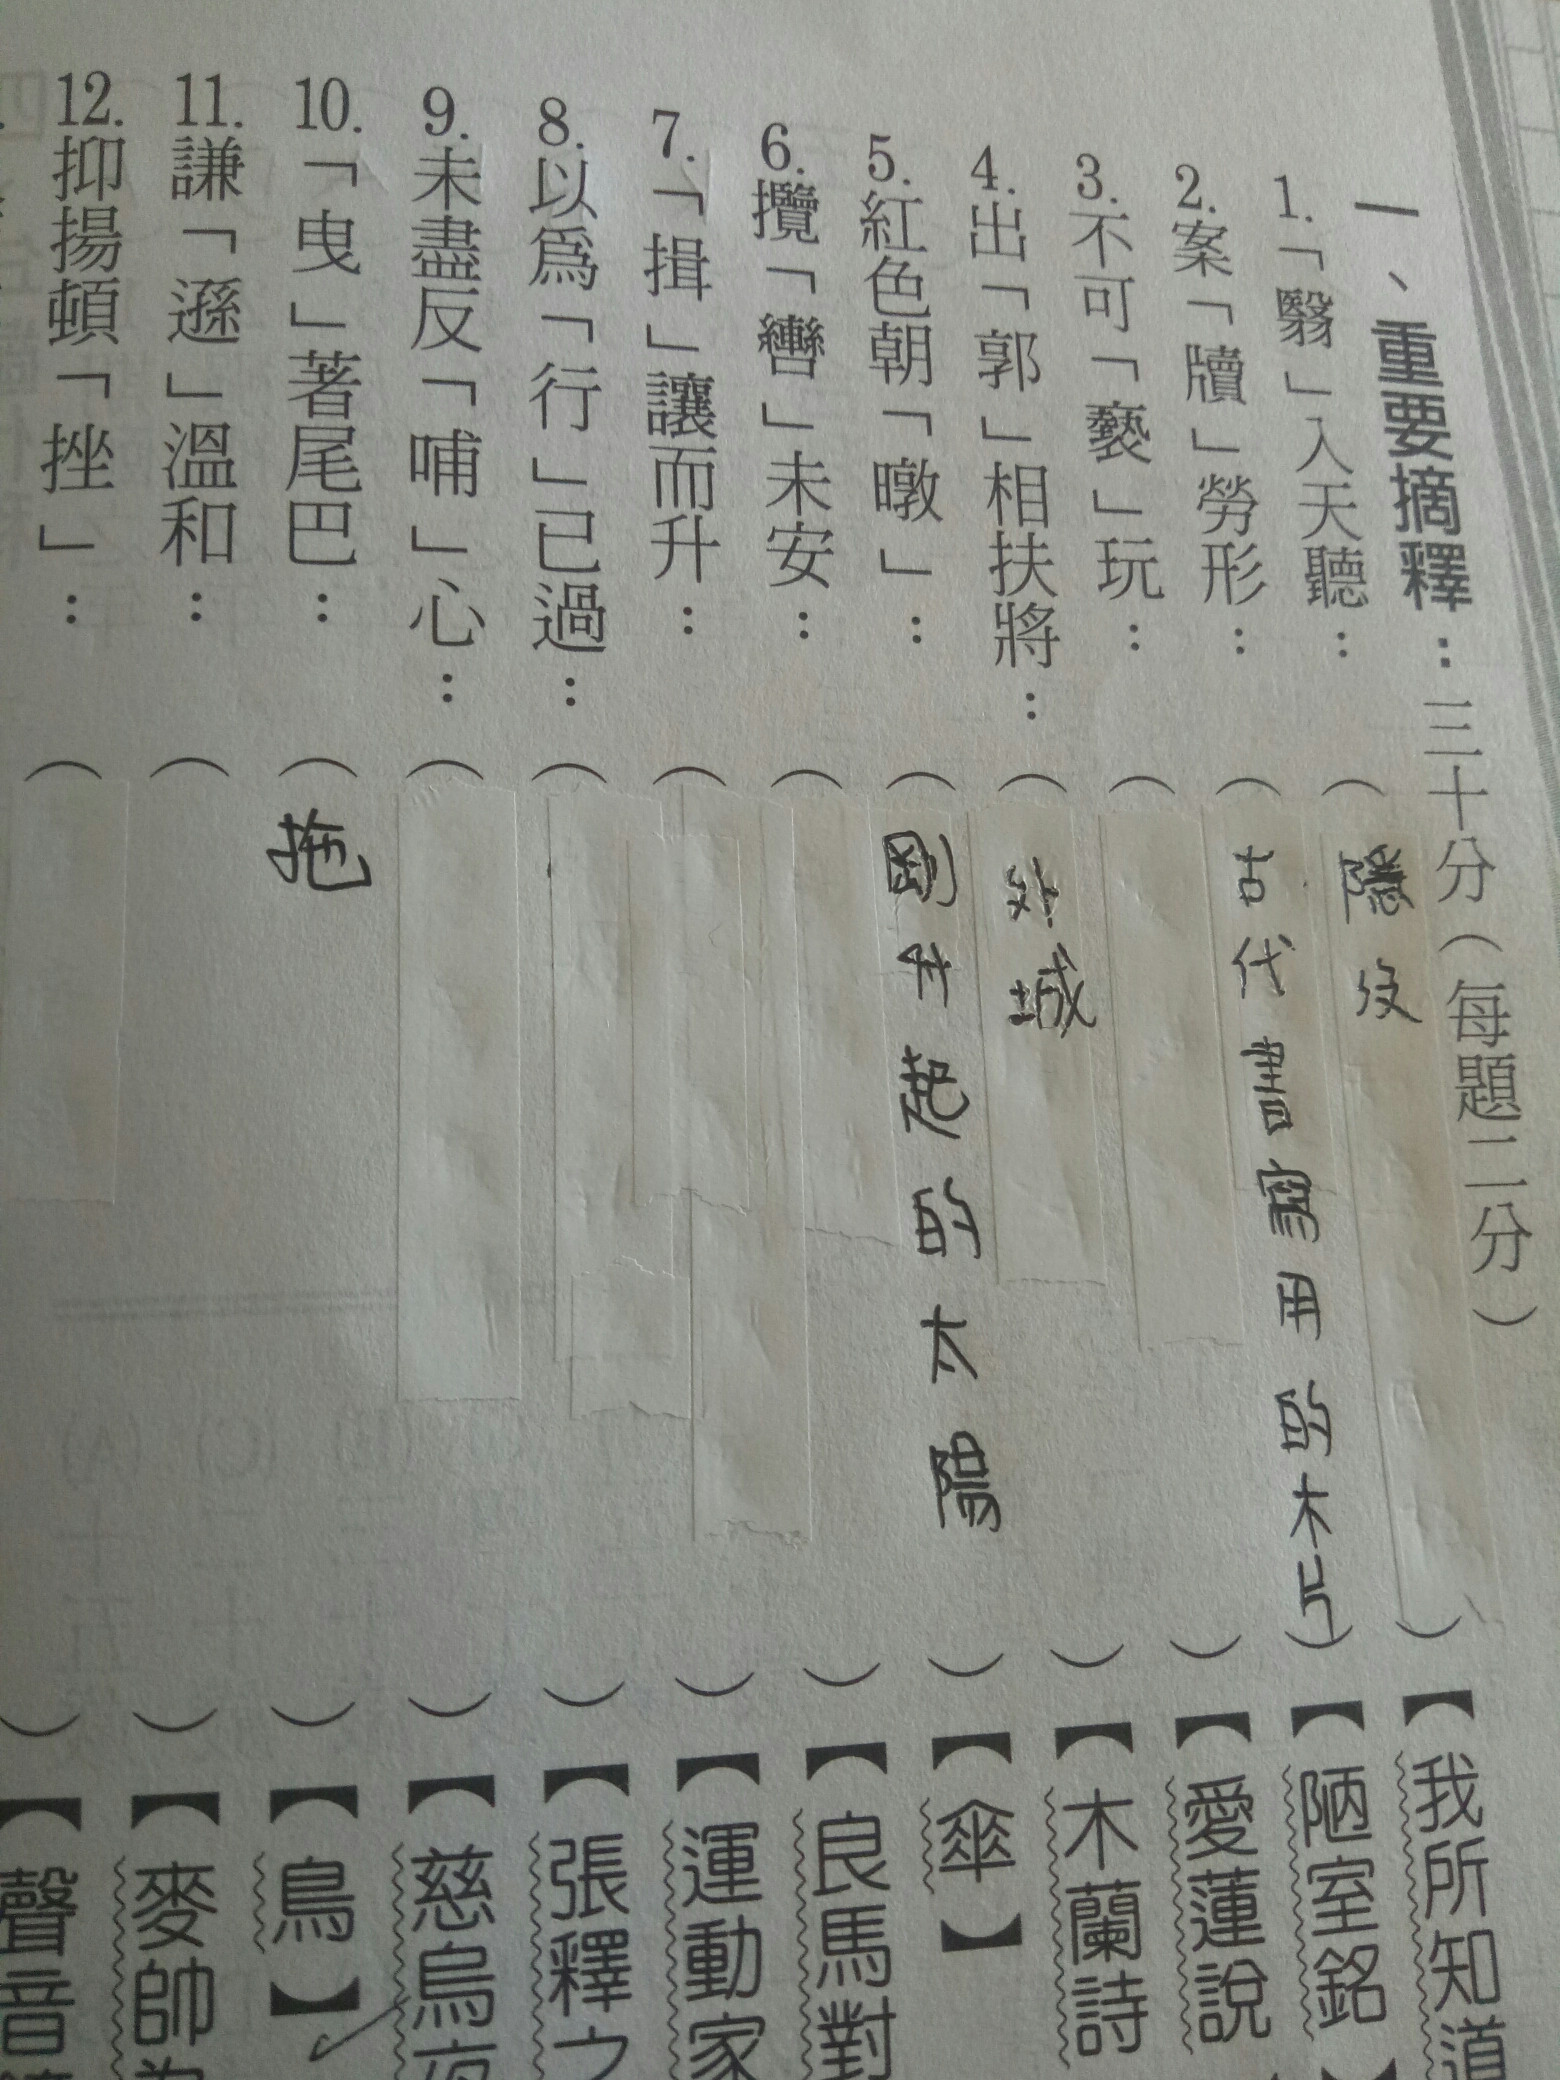 一、重要摘釋：三十分（每題二分）
1.「翳」入天聽：（隱沒）【我所知道
2.案「牘」勞形：（古代書寫用的木片）【陋室銘】
3.不可「褻」玩：（）【愛蓮說
4.出「郭」相扶將：（外城）【木蘭詩
5.紅色朝「暾」：（剛升起的太陽）【傘】
6.攬「轡」未安：（）【良馬對
7.「揖」讓而升：（）【運動家
8.以為「行」已過：（）【張釋之
9.未盡反「哺」心：（）【慈烏夜
10.「曳」著尾巴：（拖）【鳥】
11.謙「遜」溫和：（）【麥帥為
12.抑揚頓「挫」：（）【聲音